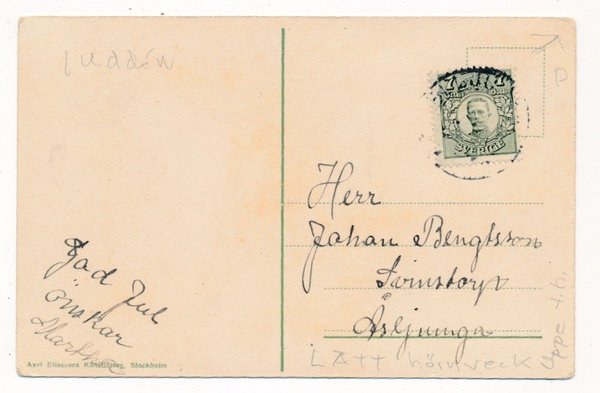 Juddón
P
SVERIGE
Herr
Johan Bengtsson
Svinstorp
Åsljunga
God Jul
önskar
Martha
LÄTT hörnveck
uppe t.h.
Axel Eliassons Konstförlag, Stockholm